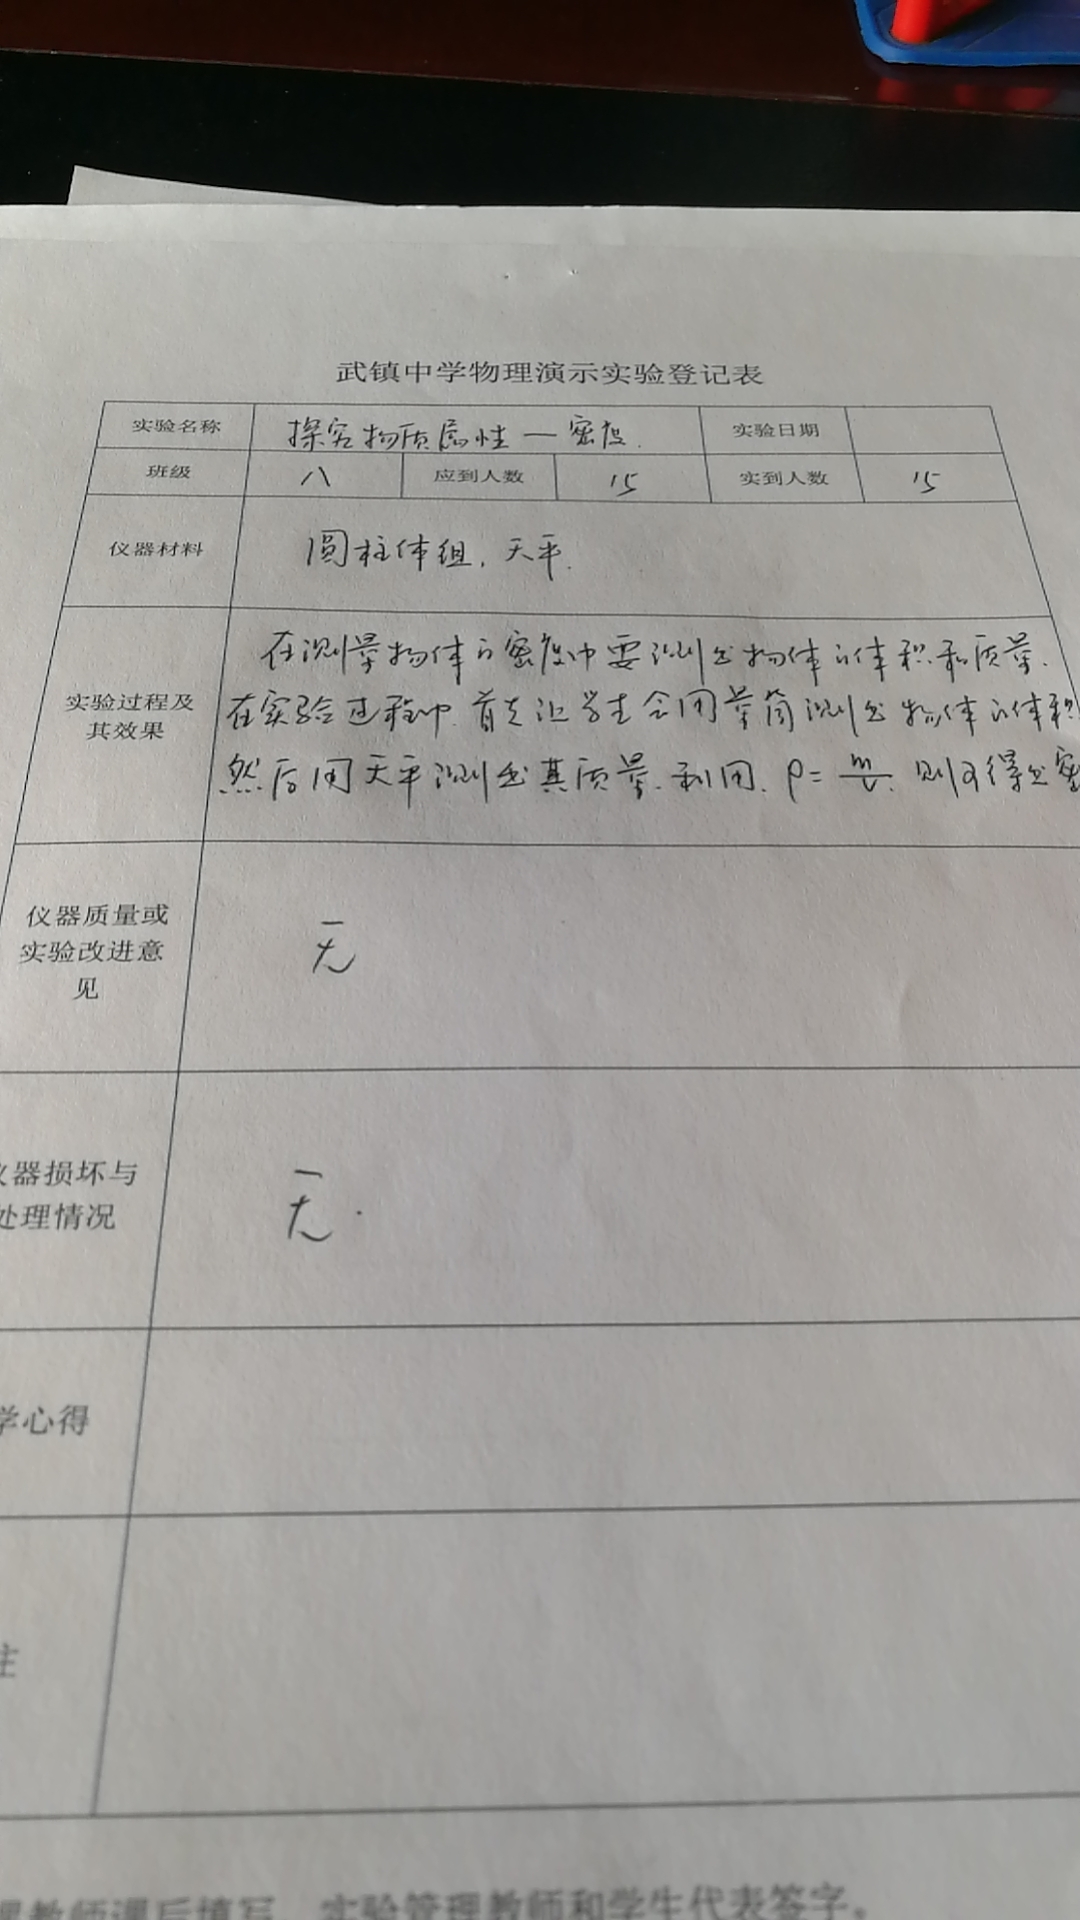 武镇中学物理演示实验登记表
实验名称 探究物质属性一密度. 实验日期
班级 八 应到人数 15 实到人数 15
仪器材料 圆柱体组. 天平.
在测量物体的密度中要测出物体的体积和质量.
实验过程及
其效果
在实验过程中.首先让学生会用量筒测出物体的体积
然后用天平测出其质量.利用.ρ=m/v.则可得出密
仪器质量或
实验改进意
见
无
仪器损坏与
处理情况
无.
学心得
注
课教师课后填写，实验管理教师和学生代表签字。